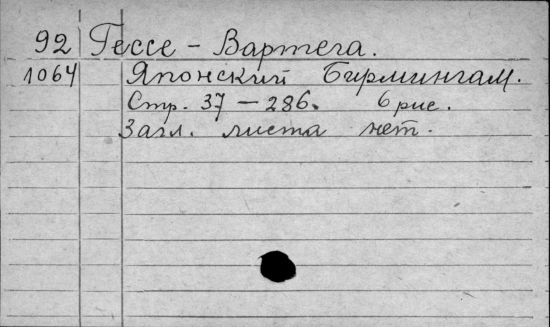 92 Гессе - Вартега.
1064 Японский Бирмингам.
Стр. 37 — 286. 6 рис.
Загл. листа нет.